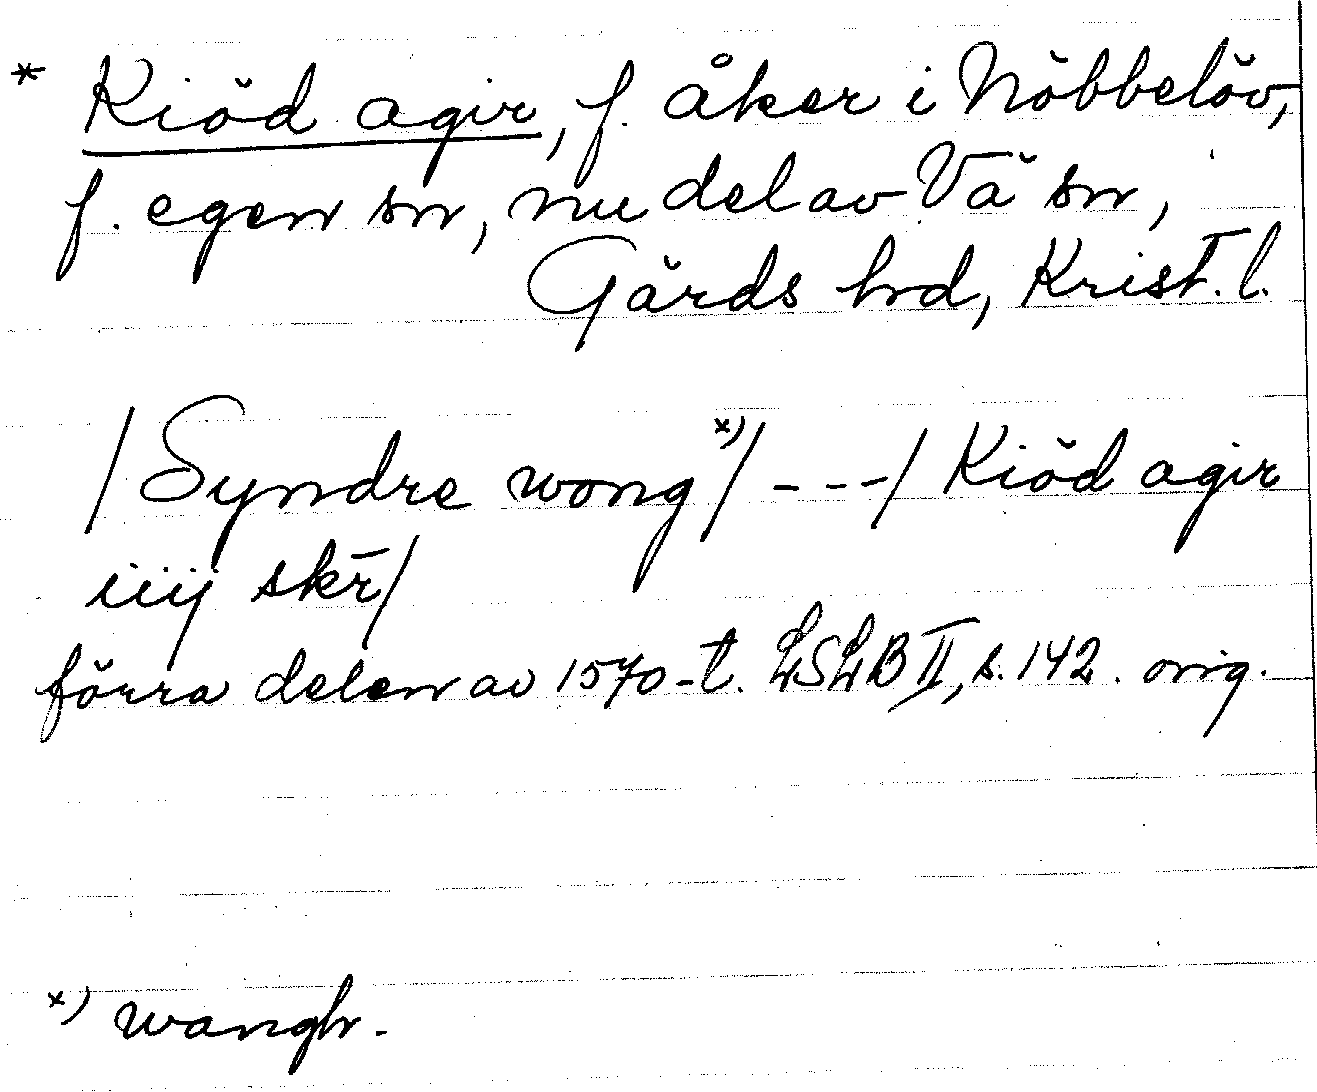 * Kiöd agir, f. åker i Nöbbelöv,
f. egen sn, nu del av Vä sn,
Gärds hd, Krist. l.
/Syndre wong x)/ - - -/ Kiöd agir
iiij skr̄/
förra delen av 1570-t. LSLB II, s. 142. orig.
x) wangh.